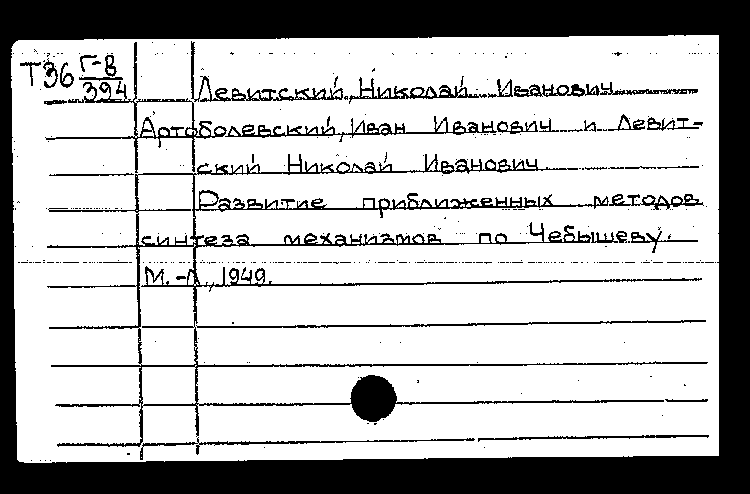 Т36 Г-В
394
Левитский, Николай Иванович
Артоболевский, Иван Иванович и Левит-
ский Николай Иванович
Развитие приближенных методов
синтеза механизмов по Чебышеву.
М.-Л., 1949.